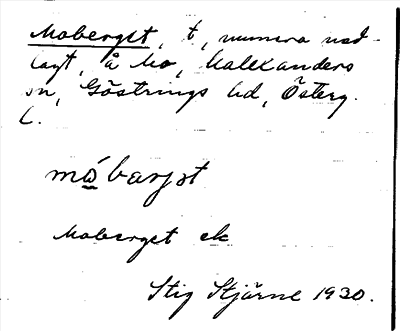 Moberget, t, numera ned-
lagt, å Mo, Malexanders
sn, Göstrings hd, Österg.
l.
mó̲barjət
Moberget ek
Stig Stjärne 1930.